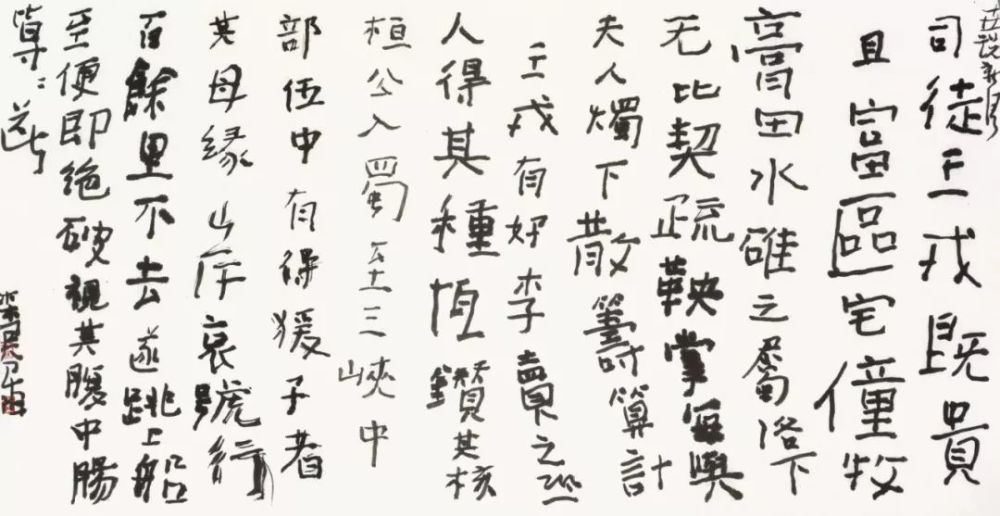 世说新语
司徒王戎既貴
且富區宅僮牧
膏田水碓之屬洛下
无比契疏鞅掌每與
夫人燭下散籌算計
王戎有好李賣之恐
人得其種恆鑽其核
桓公入蜀至三峽中
部伍中有得猨子者
其母緣岸哀號行
百餘里不去遂跳上船
至便即絶破視其腹中腸